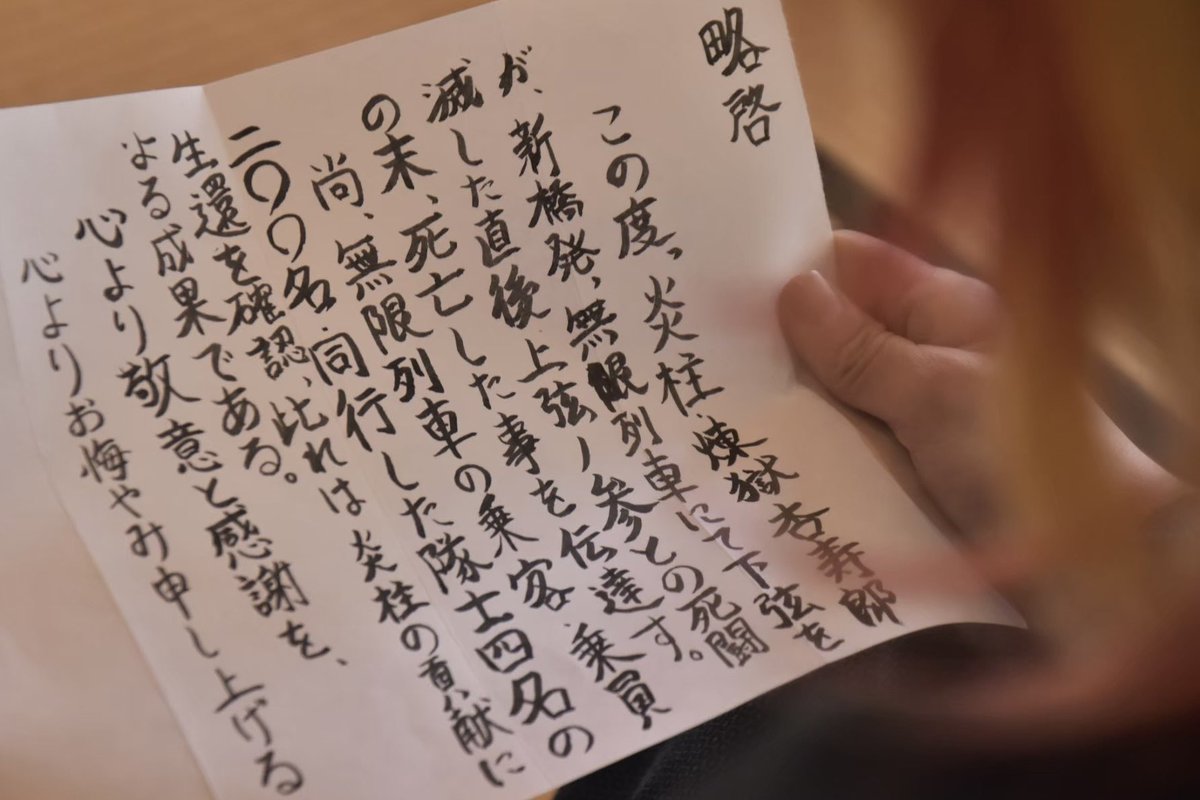 略啓
この度、炎柱、煉獄杏寿郎
が、新橋発、無限列車にて下弦を
滅した直後、上弦ノ参との死闘
の末、死亡した事を伝達す。
尚、無限列車の乗客、乗員
二〇〇名、同行した隊士四名の
生還を確認、比れは炎柱の貢献に
よる成果である。
心より敬意と感謝を、
心よりお悔やみ申し上げる